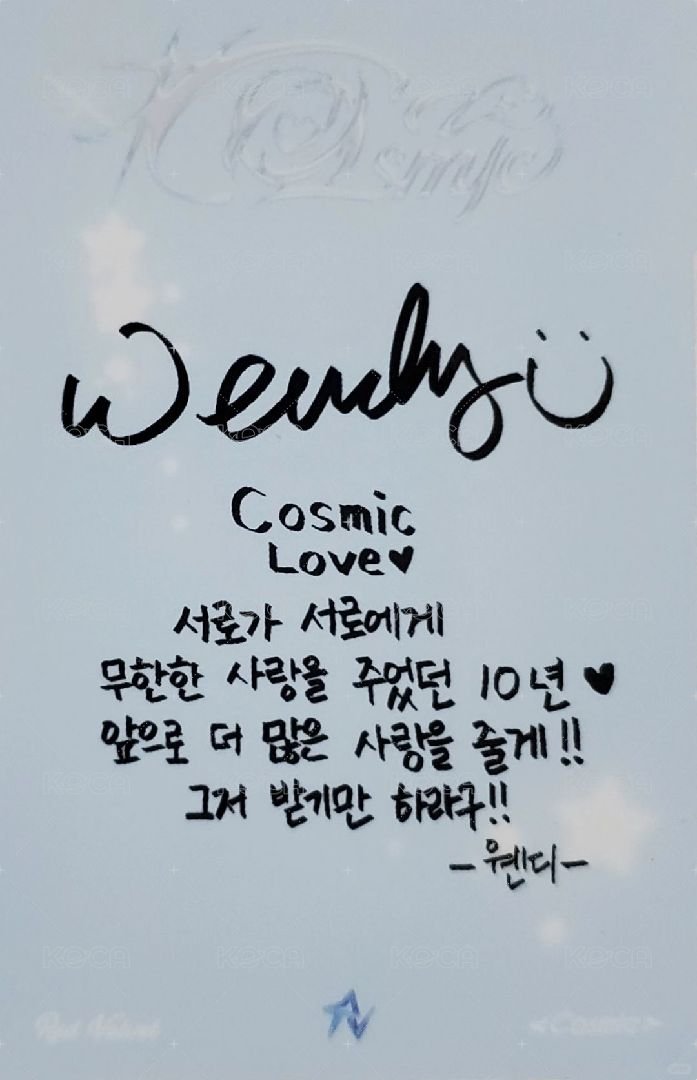 Cosmic
Wendy
Cosmic
Love♥
서로가 서로에게
무한한 사랑을 주었던 10년 ♥
앞으로 더 많은 사랑을 줄게!!
그저 받기만 하라구!!
-웬디-
Red Velvet
<Cosmic>
KOCA